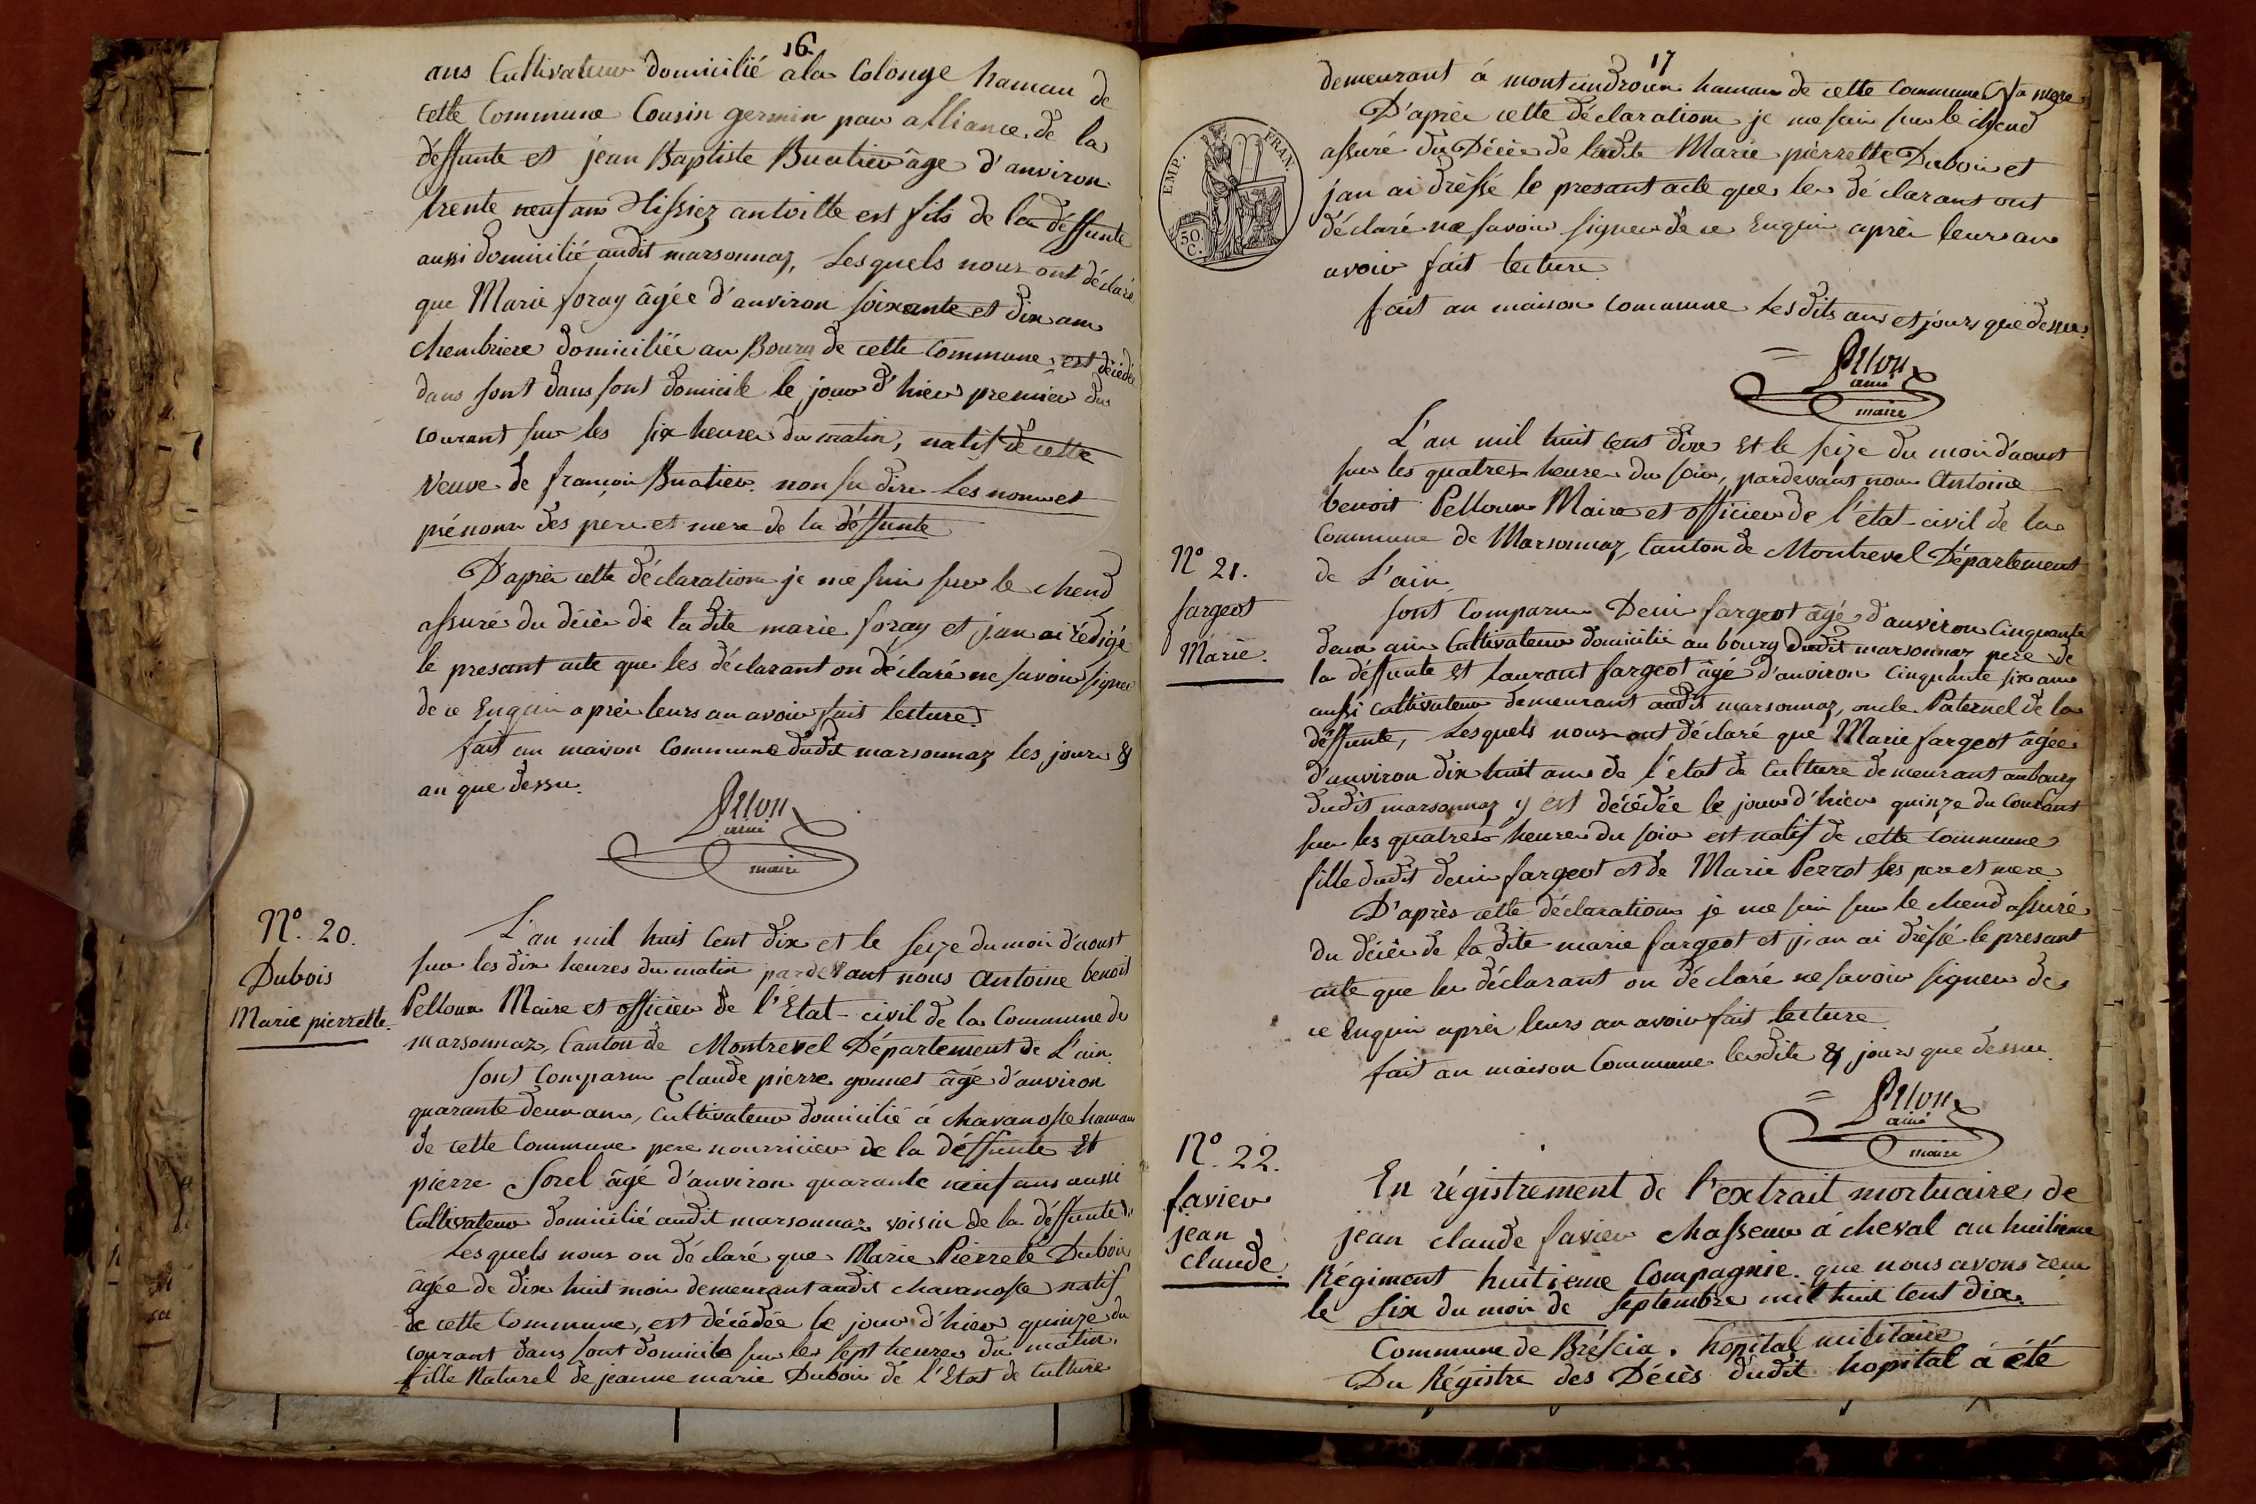 16
ans Cultivateur domicilié ala Colonge hamau de
cette Commune Cousin germin par alliance, de la
déffunte et jean Baptiste Buatier âge d'anviron
trente neuf ans Tissiez antoille est fils de la déffunte
aussi domicilié audit marsonnaz, Lesquels nous ont déclaré
que Marie foray âgée d'anviron soixante et dix ans
chembriere domiciliée au Bourg de cette Commune, est décédée
dans sont dans sont domicile le jour d'hier premier du
courant sur les six heures du matin, natif de cette
Veuve de françois Buatier. non su dire les noms et
prénoms des pere et mere de la déffunte
D'après cette déclaration je me suis sur le chend
assuré du décès de la dite marie foray et j'an ai rédigé
le presant acte que les déclarant on déclaré ne savoir signer
de ce Enquis après leurs an avoir fait lecture.
fait an maison Commune dudit marsonnaz les jours &
an que dessu.
Pelloux
ainé
maire
Nº. 20.
Dubois
Marie pierrette.
L'an mil huit Cent dix et le seize du moi d'aoust
sur les dix heures du matin pardevant nous Antoine benoit
Pelloux Maire et officier de l'État-civil de la Commune de
marsonnaz, Canton de Montrevel Département de L'ain.
sont Comparus Claude pierre gonnet âgé d'anviron
quarante deux ans, Cultivateur domicilié á chavanosse hamau
de cette Commune pere nourricier de la déffunte Et
pierre Sorel âgé d'anviron quarante neuf ans aussi
Cultivateur domicilié audit marsonnaz voisin de la déffunte
Lesquels nous on déclaré que Marie Pierrete Dubois
âgée de dix huit moi demeurant audit chavanosse natif
de cette Commune, est décédée le jour d'hier quinze du
courant dans sont domicile sur les sept heures du matin.
fille Naturel de jeanne marie Dubois de l'Etat de Culture
17
demeurant á montandroux hamau de cette Commune sa mere
D'après cette déclaration je me suis sur le chend
assuré du Décès de ladite Marie pierrette Dubois et
j'an ai drèssé le presant acte que les déclarans ont
déclaré ne savoir signer de ce Enquis après leurs an
avoir fait lecture
fait an maison Commune Lesdits ans et jours que dessu.
EMP. FRAN.
50.
C.
Pelloux
ainé
maire
Nº 21.
fargeot
Marie.
L'an mil huit Cent dix Et le seize du moi d'aoust
sur les quatres heures du soir, pardevant nous Antoine
benoit Pelloux Maire et officier de l'état-civil de la
Commune de Marsonnaz, Canton de Montrevel Département
de L'ain
sont Comparus Denis fargeot âgé d'anviron Cinquante
deux ans Cultivateur domicilié au bourg dudit marsonnaz pere de
la déffunte et Laurant fargeot âgé d'anviron Cinquante six ans
aussi cultivateur demeurant audit marsonnaz, oncle Paternel de la
déffunte, Lesquels nous ont déclaré que Marie fargeot âgée
d'anviron dix huit ans de l'état de Culture demeurant au bourg
dudit marsonnaz y est décédée le jour d'hier quinze du Courant
sur les quatres heures du soir est natif de cette Commune
fille dudit denis fargeot et de Marie Perrot ses pere et mere
D'après cette déclaration je me suis sur le chend assuré
du décès de la dite marie fargeot et j'an ai drèssé le presant
acte que les déclarant on déclaré ne savoir signer de
ce Enquis après leurs an avoir fait lecture
fait an maison Commune lesdits & jours que dessu.
Pelloux
ainé
maire
Nº. 22.
favier
jean
claude.
En régistrement de l'extrait mortuaire de
jean claude favier chasseur á cheval au huitieme
Régiment huitieme Compagnie. que nous avons reçu
le Six du moi de Septembre mil huit Cent dix.
Commune de Bréscia. hopital militaire
Du Régistre des Décès dudit hopital á été